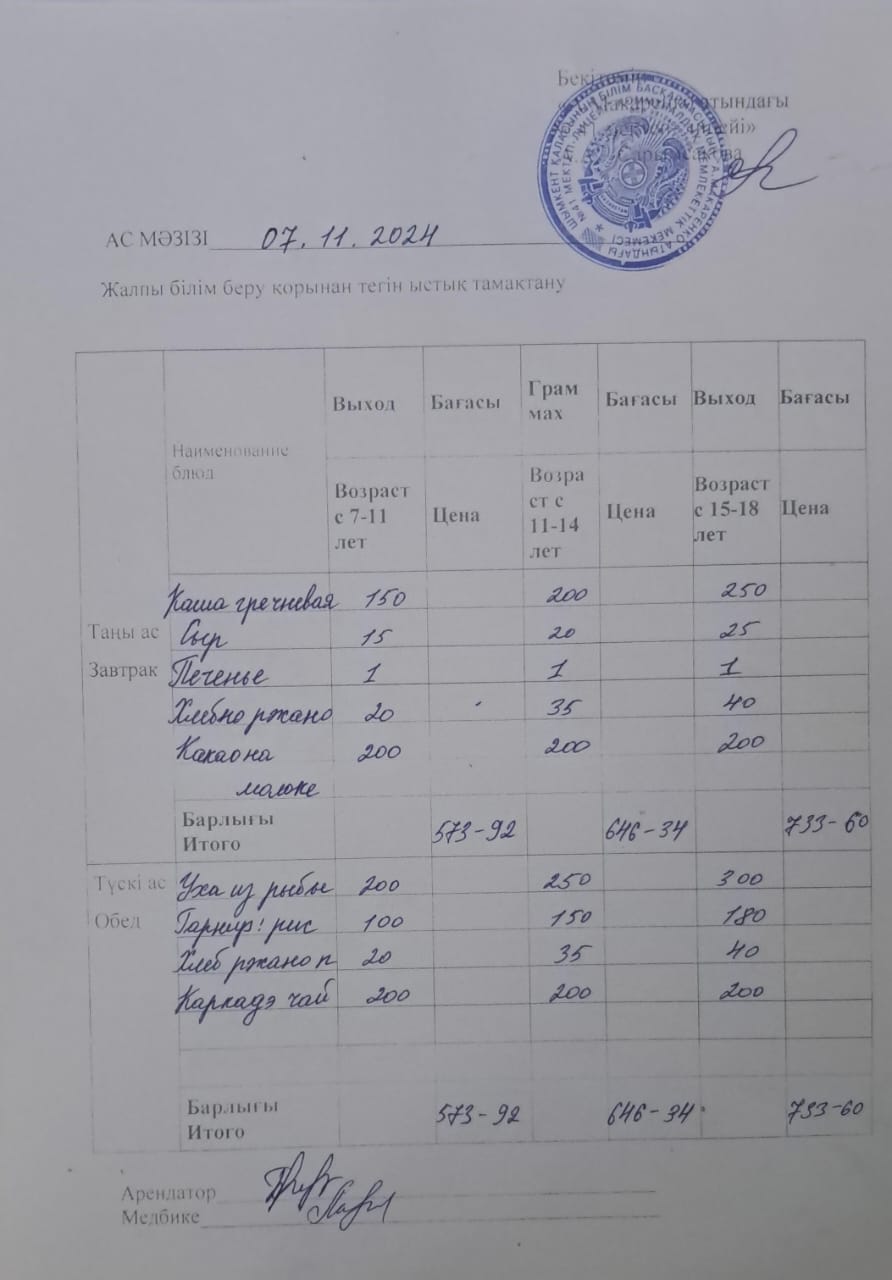 Бекітемін
атындағы
АС МӘЗІЗІ 07.11.2024
Жалпы білім беру қорынан тегін ыстық тамақтану
Наименование блюд
Выход Бағасы Грам мах Бағасы Выход Бағасы
Возраст с 7-11 лет Цена Возра ст с 11-14 лет Цена Возраст с 15-18 лет Цена
Таңы ас
Завтрак
Каша гречневая 150 200 250
Сыр 15 20 25
Печенье 1 1 1
Хлебно ржано 20 35 40
Какао на 200 200 200
молоке
Барлығы
Итого 573-92 646-34 733-60
Түскі ас
Обед
Уха из рыбы 200 250 300
Гарнир: рис 100 150 180
Хлеб ржано п 20 35 40
Каркадэ чай 200 200 200
Барлығы
Итого 573-92 646-34 733-60
Арендатор
Медбике